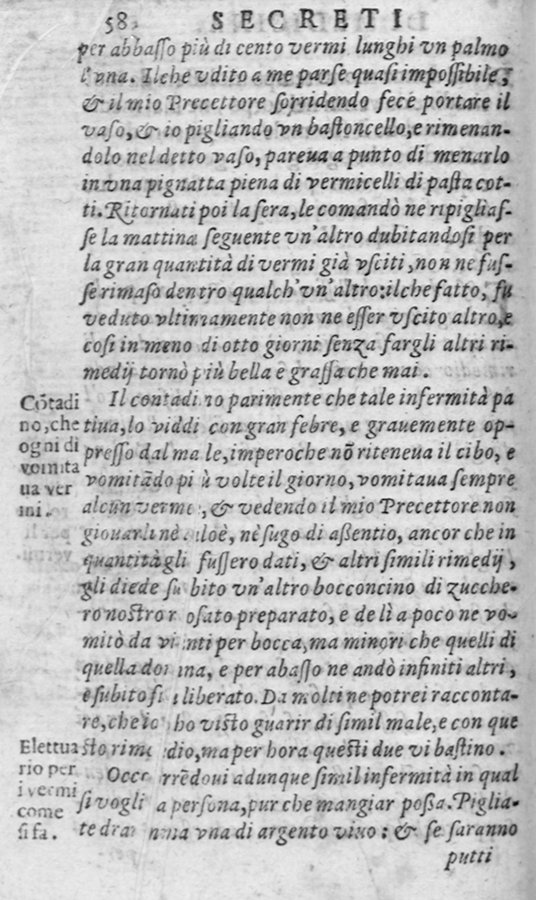 58 SECRETI
per abbasso più di cento vermi lunghi vn palmo
l'vna. Ilche vdito a me parse quasi impossibile,
& il mio Precettore sorridendo fece portare il
vaso, & io pigliando vn bastoncello, e rimenan-
dolo nel detto vaso, pareua a punto di menarlo
in vna pignatta piena di vermicelli di pasta cot-
ti. Ritornati poi la sera, le comandò ne ripigliaf-
se la mattina seguente vn'altro dubitandosi per
la gran quantità di vermi già vsciti, non ne fus-
se rimaso dentro qualch'vn'altro: ilche fatto, fu
veduto vltimamente non ne esser vscito altro, e
cosi in meno di otto giorni senza fargli altri ri-
medij tornò più bella e grassa che mai.
Cōtadi
no, che
ogni di
vomita
ua ver
mi.
Il contadino parimente che tale infermità pa
tiua, lo viddi con gran febre, e grauemente op-
presso dal male, imperoche nō riteneua il cibo, e
vomitādo più volte il giorno, vomitaua sempre
alcun verme, & vedendo il mio Precettore non
giouarli nè aloè, nè sugo di assentio, ancor che in
quantità gli fussero dati, & altri simili rimedij,
gli diede subito vn'altro bocconcino di zucche-
ro nostro rosato preparato, e de lì a poco ne vo-
mitò da vinti per bocca, ma minori che quelli di
quella donna, e per abasso ne andò infiniti altri,
e subito fu liberato. Da molti ne potrei racconta-
re, che io ho visto guarir di simil male, e con que
sto rimedio, ma per hora questi due vi bastino.
Elettua
rio per
i vermi
come
si fa.
Occorrēdoui adunque simil infermità in qual
si vogli a persona, pur che mangiar possa. Piglia-
te dramma vna di argento viuo: & se saranno
putti